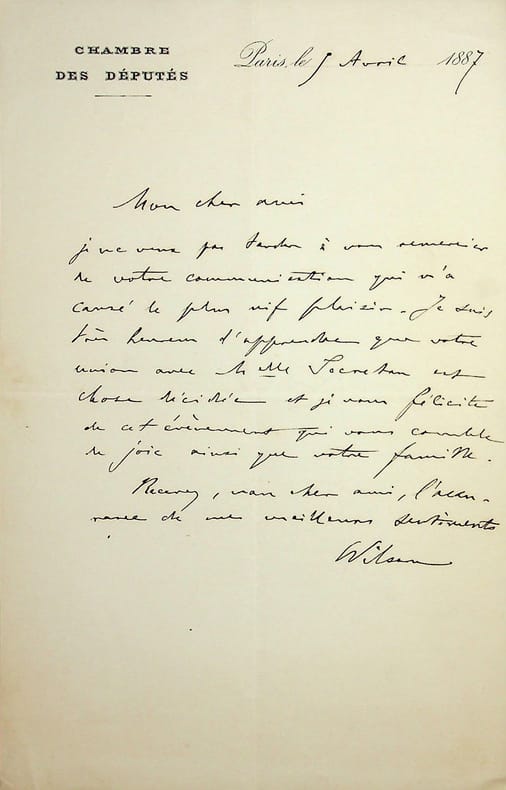 CHAMBRE
DES DÉPUTÉS
Paris, le 5 Avril 1887
Mon cher ami
je ne veux pas tarder à vous remercier
de votre communication qui m'a
causé le plus vif plaisir. Je suis
très heureux d'apprendre que votre
union avec Mlle Secretan est
chose décidée et je vous félicite
de cet évènement qui vous comble
de joie ainsi que votre famille.
Recevez, mon cher ami, l'assu-
rance de mes meilleurs sentiments
Wilson